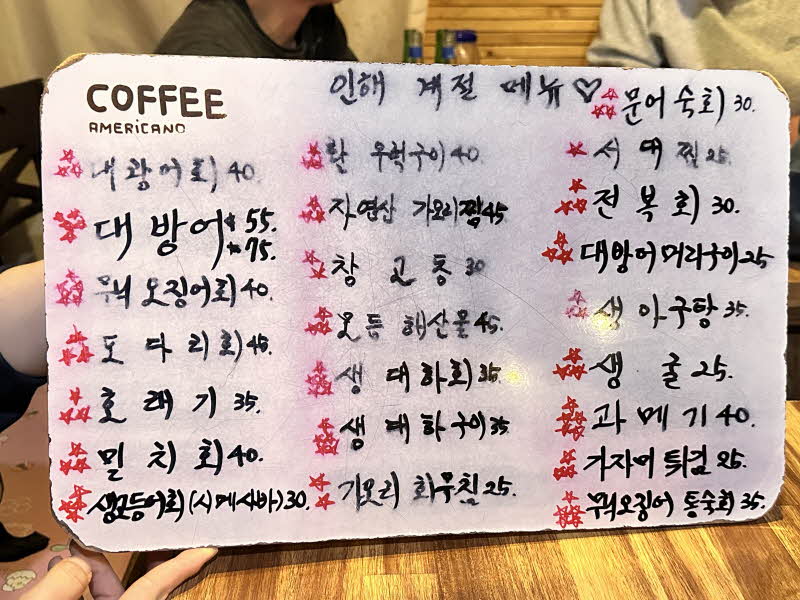 COFFEE
AMERICANO
인해 계절 메뉴♡
대광어회 40.
대방어 小 55.
大 75.
무늬오징어회 40.
도다리회 45.
호래기 35.
밀치회 40.
생고등어회(시메사바) 30.
활 우럭구이 40
자연산 가오리찜 45
창 고 통 30
모듬 해산물 45.
생 대하회 35.
생 대하구이 35
가오리 회무침 25.
문어숙회 30.
서대찜 25.
전복회 30.
대방어머리구이 25
생 아구탕 35.
생 굴 25.
과메기 40.
가자미 튀김 25.
무늬오징어 통숙회 35.